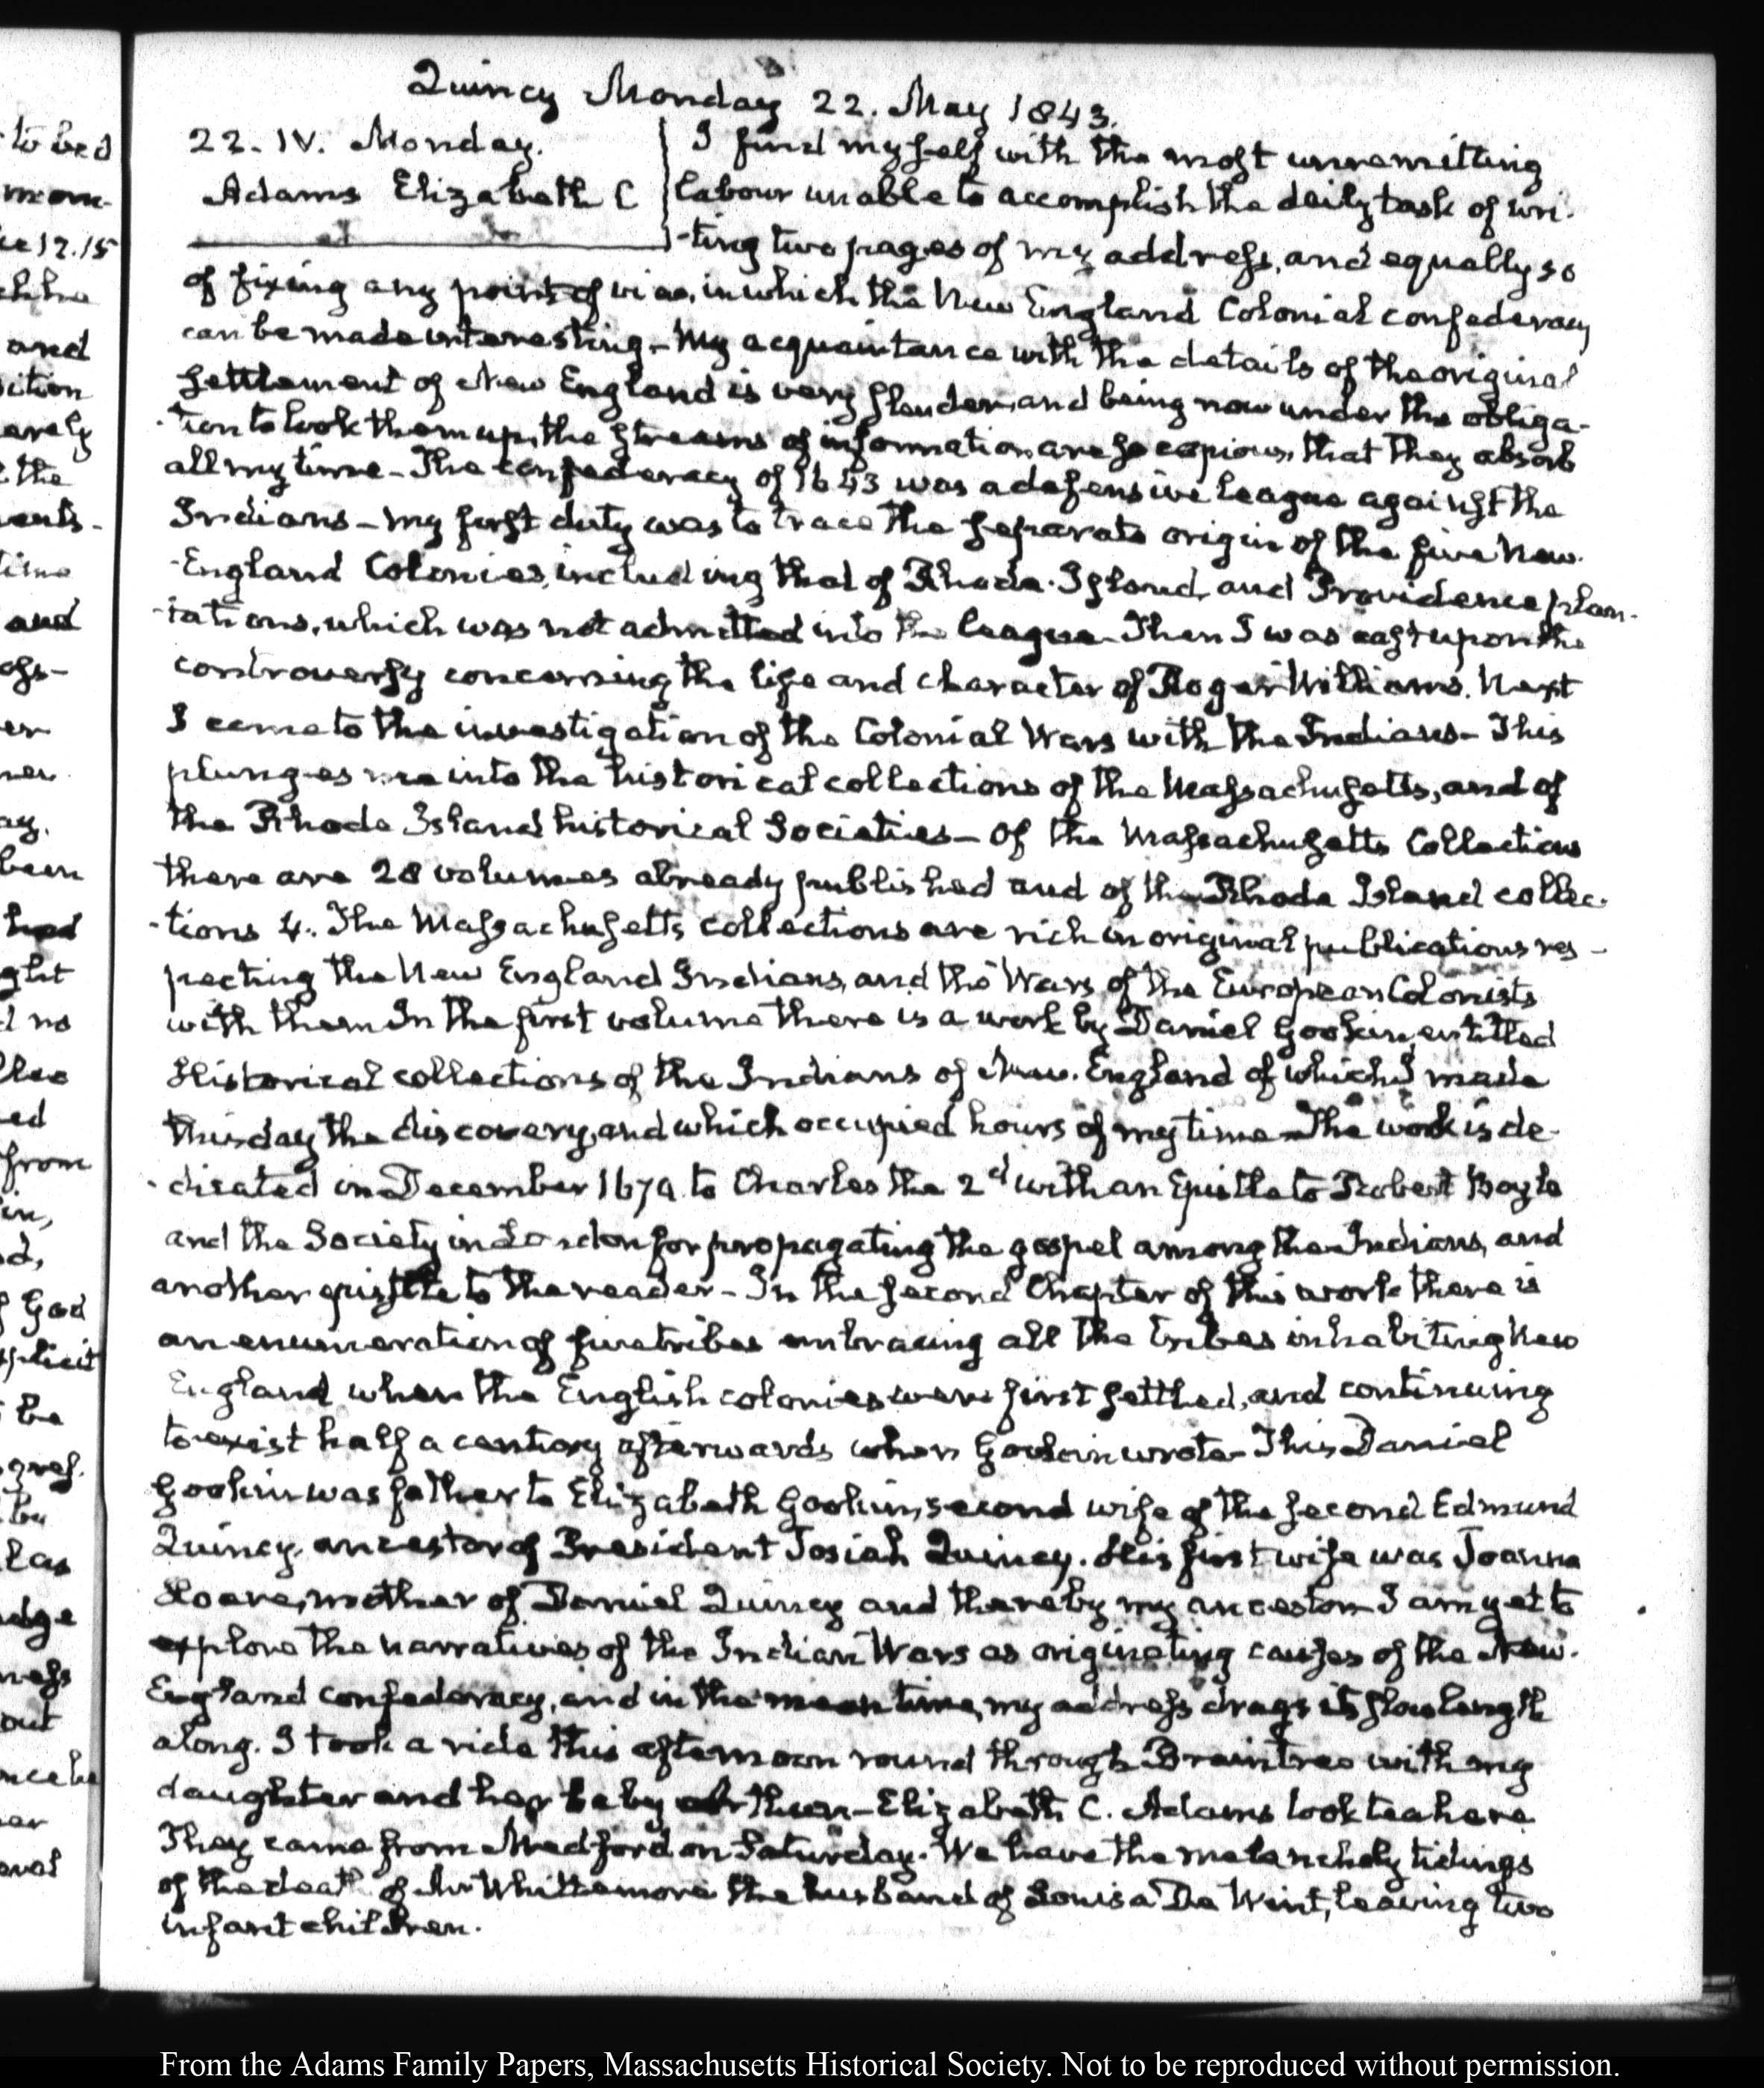 Quincy Monday 22. May 1843.
22. IV. Monday.
Adams Elizabeth C
I find myself with the most unremitting
labour unable to accomplish the daily task of wri-
-ting two pages of my address, and equally so
of fixing any point of view, in which the New England Colonial confederacy
can be made interesting - My acquaintance with the details of the original
settlement of New England is very slender, and being now under the obliga-
-tion to look them up, the streams of information are so copious, that they absorb
all my time - The confederacy of 1643 was a defensive league against the
Indians - my first duty was to trace the separate origin of the five New-
-England Colonies, including that of Rhode-Island, and Providence plan-
-tations, which was not admitted into the league - Then I was cast upon the
controversy concerning the life and character of Roger Williams. Next
I came to the investigation of the Colonial Wars with the Indians - This
plunges me into the historical collections of the Massachusetts, and of
the Rhode Island historical Societies - Of the Massachusetts Collections
there are 28 volumes already published and of the Rhode Island collec-
-tions 4. The Massachusetts collections are rich in original publications res-
pecting the New England Indians, and the Wars of the European Colonists
with them In the first volume there is a work by Daniel Gookin, entitled
Historical collections of the Indians of New-England of which I made
this day the discovery, and which occupied hours of my time - The work is de-
-dicated in December 1674 to Charles the 2d with an Epistle to Robert Boyle
and the Society in London for propagating the gospel among the Indians, and
another epistle to the reader - In the second Chapter of this work there is
an enumeration of five tribes embracing all the tribes inhabiting New
England when the English colonies were first settled, and continuing
to exist half a century afterwards when Gookin wrote - This Daniel
Gookin was father to Elizabeth Gookin, second wife of the second Edmund
Quincy, ancestor of President Josiah Quincy. His first wife was Joanna
Hoare, mother of Daniel Quincy and thereby my ancestor - I am yet to
explore the narratives of the Indian Wars as originating causes of the New-
England confederacy, and in the mean time, my address drags its slow length
along. I took a ride this afternoon round through Braintree with my
daughter and her baby - Elizabeth C. Adams took tea here
They came from Medford on Saturday. We have the melancholy tidings
of the death of Mr Whittemore the husband of Louisa De Wint, leaving two
infant children.
From the Adams Family Papers, Massachusetts Historical Society. Not to be reproduced without permission.